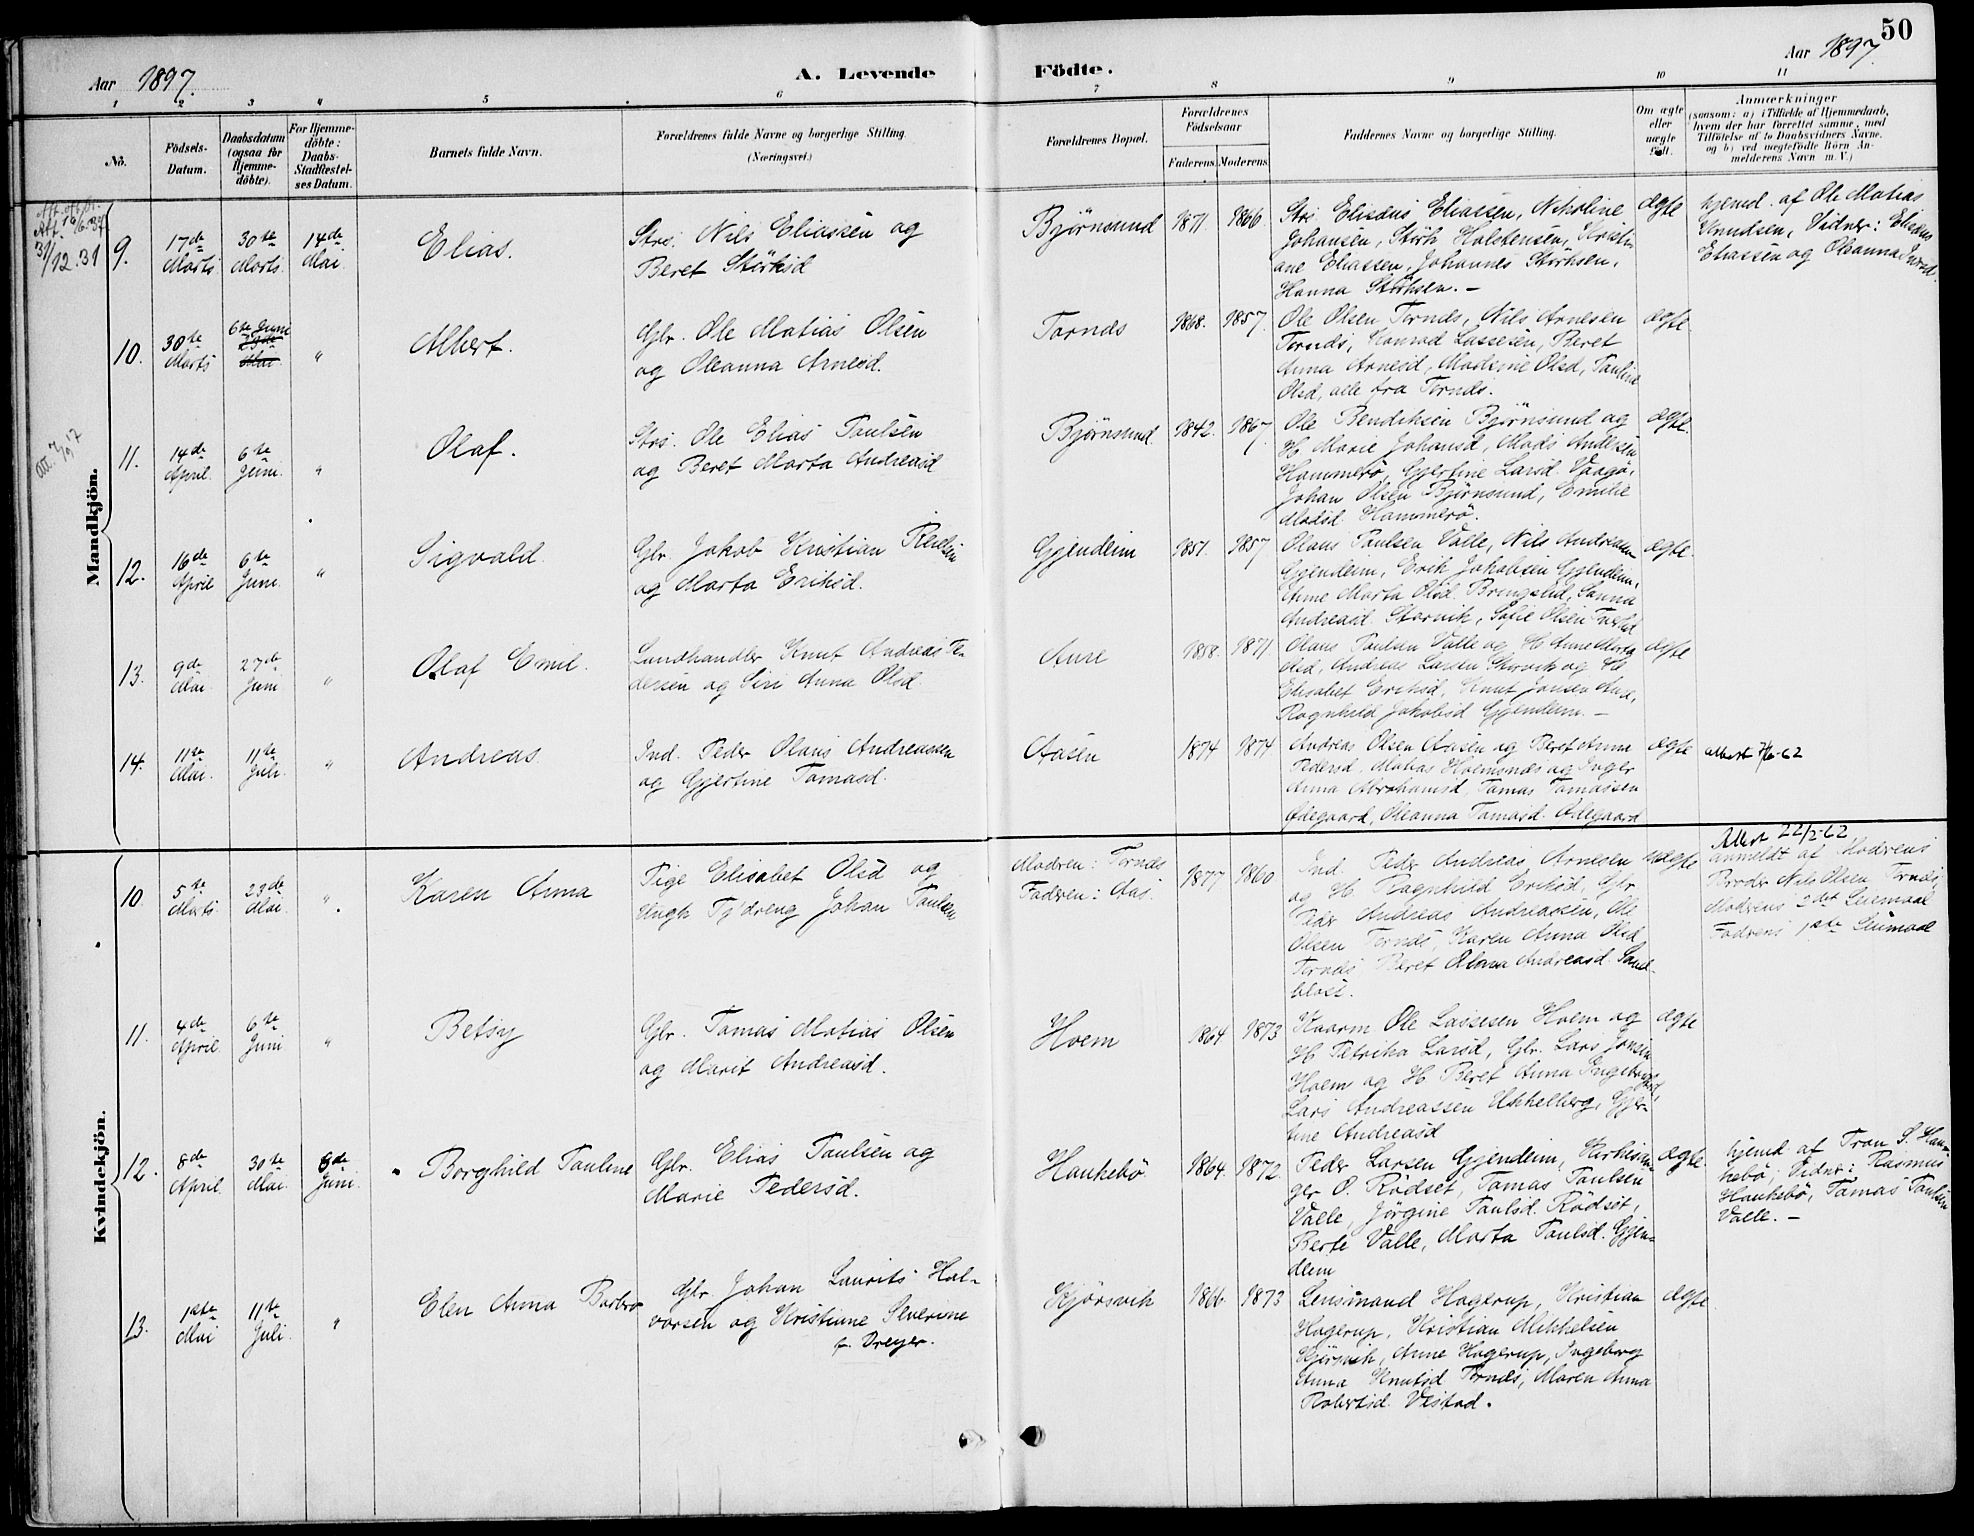 50
Aar 1897.
A. Levende
Födte.
Aar 1897.
1 2 3 4 5 6 7 8 9 10 11
No.
Födsels-Datum.
Daabsdatum (ogsaa for Hjemme-döbte).
For Hjemme-döbte: Daabs-Stadfæstel-ses Datum.
Barnets fulde Navn.
Forældrenes fulde Navne og borgerlige Stilling. (Næringsvei.)
Forældrenes Bopæl.
Forældrenes Födselsaar
Faderens. Moderens.
Faddernes Navne og borgerlige Stilling.
Om ægte eller uægte födt.
Anmærkninger
(saasom: a) i Tilfælde af Hjemmedaab,
hvem der har forrettet samme, med
Tilföielse af to Daabsvidners Navne.
og b) ved uægtefödte Börn An-
melderens Navn m. V.)
Mandkjön.
31/12.31
9.
17de Marts
30te Marts.
14de Mai.
Elias.
Strs. Nils Eliassen og
Beret Störksd
Björnsund
1871.
1866.
Strs. Elisæus Eliassen, Nikoline
Johansen, Störk Holstensen, Kristi-
ane Eliassen, Johannes Störksen,
Hanna Störksen. –
ægte
hjemd. af Ole Matias
Knudsen, Vidner: Elisæus
Eliassen og Oleanna
10.
30te Marts
6te Juni
23de Mai.
"
Albert.
Gbr. Ole Matias Olsen
og Oleanna Arnesd.
Tornes
1868.
1857.
Ole Olsen Tornes, Nils Arnesen
Tornes, Konrad Lassesen, Beret
Anna Arnesd, Madsine Olsd, Pauline
Olsd, alle fra Tornes.
ægte
11.
14de April.
6te Juni.
"
Olaf.
Strs. Ole Elias Paulsen
og Beret Marta Andreasd
Björnsund.
1842.
1867.
Ole Bendiksen Björnsund og
H Marie Johansd, Mads Andersen
Hammerö, Gjertine Larsd. Vaagö,
Johan Olsen Björnsund, Emilie
Madsd. Hammerö.
ægte.
12.
16de April
6te Juni.
"
Sigvald.
Gbr. Jakob Kristian
og Marta Eriksd.
Gjendeim
1851.
1857
Olaus Paulsen Valle, Nils Andreassen
Gjendeim, Erik Jakobsen Gjendeim,
Anne Marta Olsd. Sanna
Andreasd. Storvik, Sofie Olsen
ægte.
13.
9de Mai.
27de Juni
"
Olaf Emil.
Landhandler Knut Andreas Pe-
dersen og Siri Anna Olsd.
Aure
1858.
1871
Olaus Paulsen Valle og H Anne Marta
Olsd, Andreas Larsen Storvik og H
Elisabet Eriksd, Knut Jonsen Aure,
Ragnhild Jakobsd Gjendeim. –
ægte
14.
11te Mai.
11te Juli.
"
Andreas.
Ind. Peder Olaus Andreassen
og Gjertine Tomasd.
Aasen
1874
1874
Andreas Olsen Aasen og Beret Anne
Pedersd, Matias Hoemsnes og Inger
Anna Abrahamsd, Tomas Tomassen
Ödegaard, Oleanna Tomasd. Ödegaard
ægte
attest 7/6-62
Kvindekjön.
10.
5te Marts
23de Mai.
"
Karen Anna
Pige Elisabet Olsd og
Ungk Tj'dreng Johan Paulsen
Modren: Tornes
Fadren: Aas.
1877
1860
Ind. Peder Andreas Arnesen
og H. Ragnhild Eriksd, Gbr.
Peder Andreas Andreassen, Ole
Olsen Tornes, Karen Anna Olsd
Tornes, Beret Olana Andreasd. Sand-
blost.
uægte
Attest 22/2-62
anmeldt af Modrens
Broder Nils Olsen Tornes,
Modrens 2det Leiermaal
Fadrens 1ste Leiermaal
11.
4de April.
6te Juni
"
Betsy
Gbr. Tomas Matias Olsen
og Marit Andreasd.
Hoem
1864.
1873
Kaarm Ole Lassesen Hoem og
H Petrika Larsd, Gbr. Lars Jonsen
Hoem og H Beret Anna Ingebrigtsd,
Lars Andreassen Ukkelberg, Gjer-
tine Andreasd
ægte
12.
8de April.
30te Mai.
8de Juni.
Borghild Pauline
Gbr. Elias Paulsen og
Marie Pedersd.
Haukebö.
1864.
1872.
Peder Larsen Gjendeim, Kirkesan-
ger O. Rödset, Tomas Paulsen
Valle, Jörgine Paulsd. Rödset,
Berte Valle, Marta Paulsd. Gjen-
deim
ægte.
hjemd af Tron S. Hau-
kebö, Vidner: Rasmus
Haukebö, Tomas Paulsen
Valle. –
13.
1ste Mai
11te Juli.
"
Elen Anna Barbro
Gbr. Johan Laurits Hal-
vorsen og Kristiane Severine
f. Dreyer.
Kjörsvik
1866.
1873
Lensmand Hagerup, Kristian
Hagerup, Kristian Mikkelsen
Kjörsvik, Anne Hagerup, Ingeborg
Anna Knutsd Tornes, Maren Anna
Robertsd. Vestad.
ægte